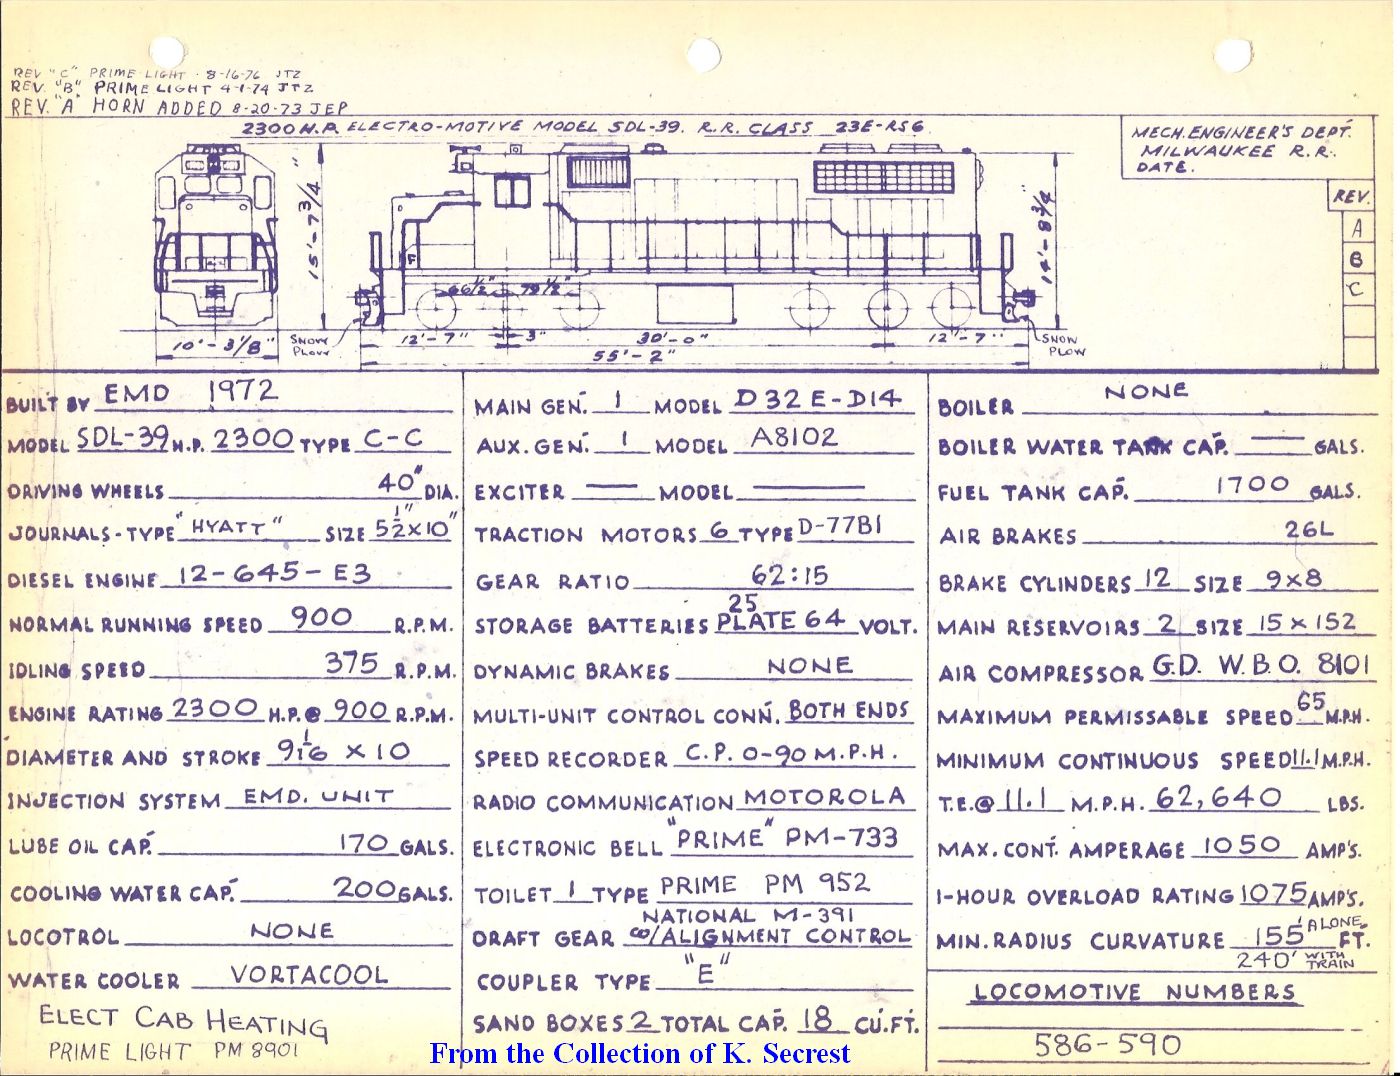 REV "C" PRIME LIGHT - 8-16-76 JTZ
REV. "B" PRIME LIGHT 4-1-74 JTZ
REV. "A" HORN ADDED 8-20-73 JEP
2300 H.P. ELECTRO-MOTIVE MODEL SDL-39. R.R. CLASS 23E-RS6
MECH. ENGINEER'S DEPT.
MILWAUKEE R.R.
DATE.
REV.
A
B
C
15'-7 3/4"
14'-8 3/4"
F
66 1/2" 79 1/2"
10'-3 1/8"
SNOW PLOW
12'-7" 3" 30'-0" 12'-7"
SNOW PLOW
55'-2"
BUILT BY EMD 1972
MODEL SDL-39 H.P. 2300 TYPE C-C
DRIVING WHEELS 40" DIA.
JOURNALS-TYPE "HYATT" SIZE 5 1/2" X 10"
DIESEL ENGINE 12-645-E3
NORMAL RUNNING SPEED 900 R.P.M.
IDLING SPEED 375 R.P.M.
ENGINE RATING 2300 H.P. @ 900 R.P.M.
DIAMETER AND STROKE 9 1/16 X 10
INJECTION SYSTEM EMD. UNIT
LUBE OIL CAP. 170 GALS.
COOLING WATER CAP. 200 GALS.
LOCOTROL NONE
WATER COOLER VORTACOOL
ELECT CAB HEATING
PRIME LIGHT PM 8901
MAIN GEN. 1 MODEL D32E-D14
AUX. GEN. 1 MODEL A8102
EXCITER — MODEL —
TRACTION MOTORS 6 TYPE D-77B1
GEAR RATIO 62:15
25
STORAGE BATTERIES PLATE 64 VOLT.
DYNAMIC BRAKES NONE
MULTI-UNIT CONTROL CONN. BOTH ENDS
SPEED RECORDER C.P. 0-90 M.P.H.
RADIO COMMUNICATION MOTOROLA
ELECTRONIC BELL "PRIME" PM-733
TOILET 1 TYPE PRIME PM 952
NATIONAL M-391
DRAFT GEAR W/ALIGNMENT CONTROL
COUPLER TYPE "E"
SAND BOXES 2 TOTAL CAP. 18 CU.FT.
BOILER NONE
BOILER WATER TANK CAP. — GALS.
FUEL TANK CAP. 1700 GALS.
AIR BRAKES 26L
BRAKE CYLINDERS 12 SIZE 9X8
MAIN RESERVOIRS 2 SIZE 15 X 152
AIR COMPRESSOR G.D. W.B.O. 8101
MAXIMUM PERMISSABLE SPEED 65 M.P.H.
MINIMUM CONTINUOUS SPEED 11.1 M.P.H.
T.E. @ 11.1 M.P.H. 62,640 LBS.
MAX. CONT. AMPERAGE 1050 AMP'S.
1-HOUR OVERLOAD RATING 1075 AMP'S.
MIN. RADIUS CURVATURE 155' ALONE FT.
240' WITH TRAIN
LOCOMOTIVE NUMBERS
586-590
From the Collection of K. Secrest